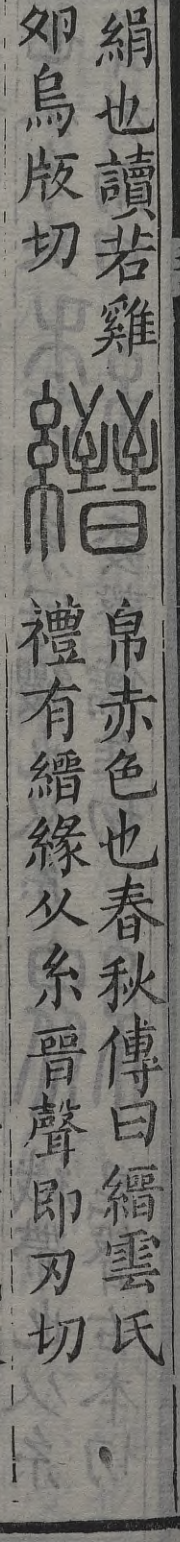 絹也讀若雞
夘烏版切
縉
帛赤色也春秋傳曰縉雲氏
禮有縉緣从糸晉聲即刃切